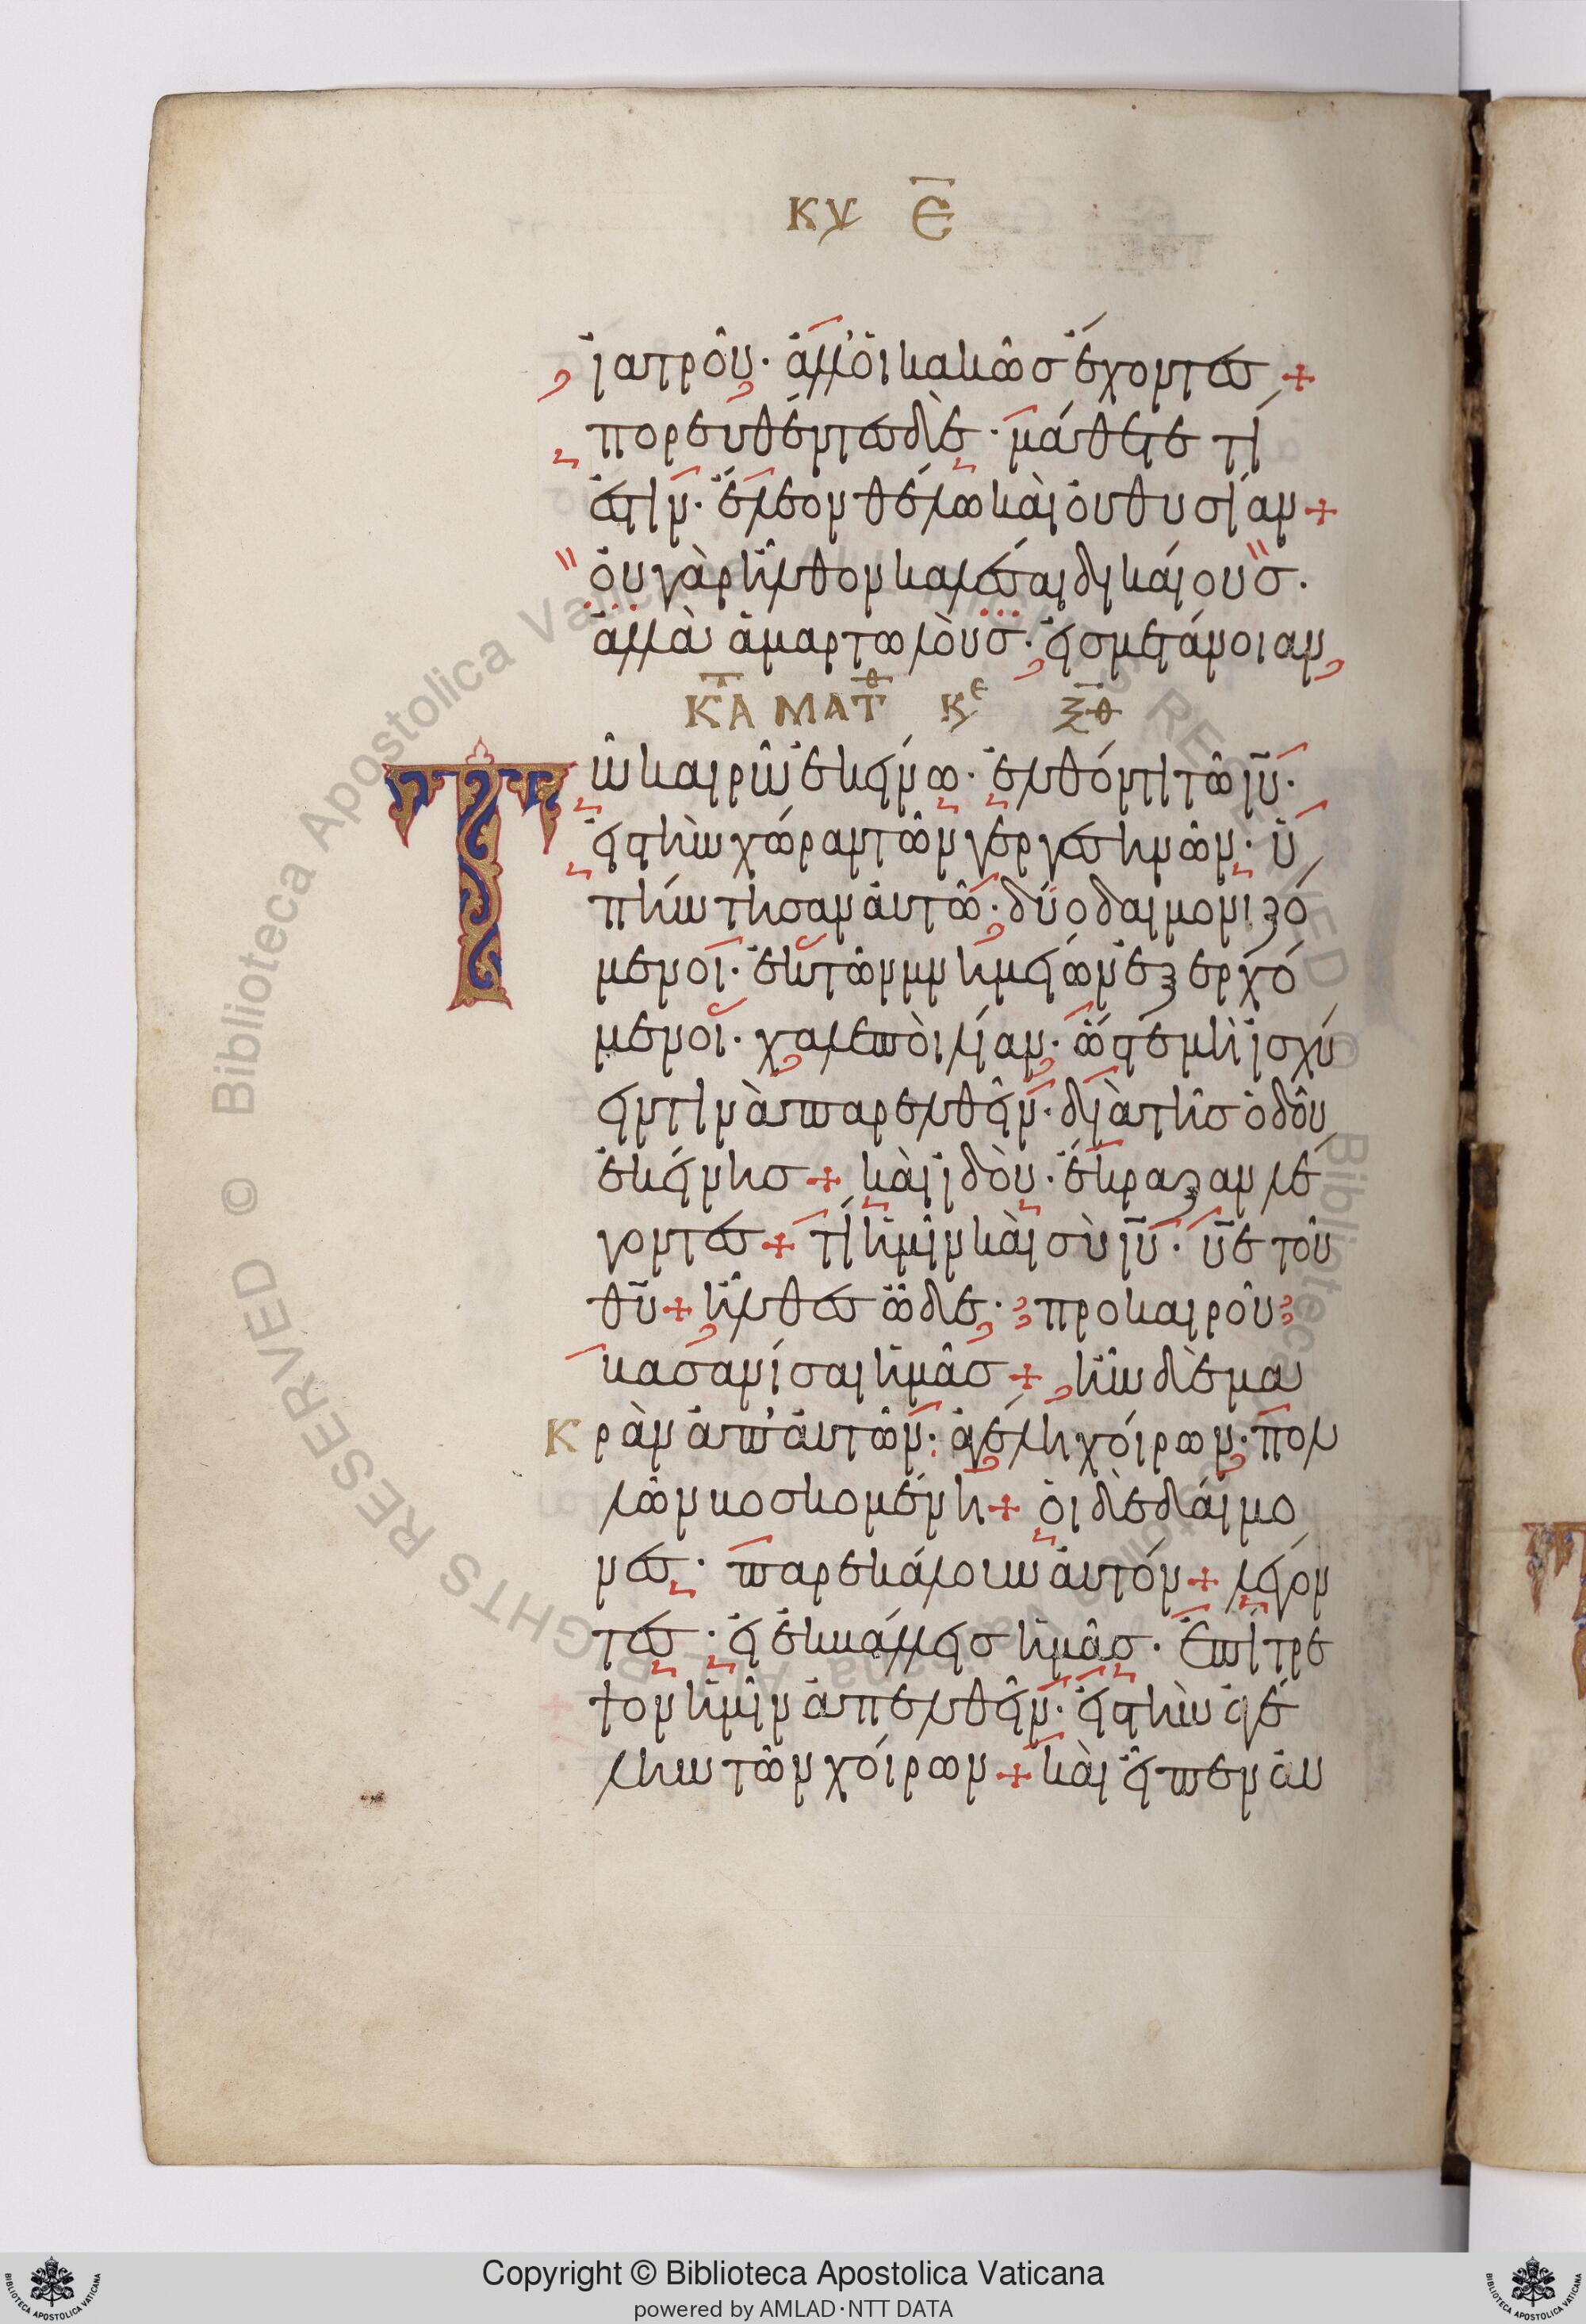 ΚΥ Ε̅
ἰατροῦ· ἀλλ' οἱ κακῶσ ἔχοντεσ +
πορευθέντεσ δὲ· μάθετε τί
ἐστιν· ἔλεον θέλω καὶ οὐ θυσίαν +
οὐ γὰρ ἦλθον καλέσαι δικαίουσ·
ἀλλὰ ἁμαρτωλοὺσ· εἰσ μετάνοιαν
ΚΑ ΜΑΤΘ ΚΥ Ε ΞΘ
Τ
ῶ καιρῶ ἐκείνω· ἐλθόντι τῶ ιυ̅·
εἰσ τὴν χώραν τῶν γεργεσηνῶν· ὑ
πήντησαν αὐτῶ· δύο δαιμονιζό
μενοι· ἐκ τῶν μνημείων ἐξερχό
μενοι· χαλεποὶ λίαν· ὥστε μὴ ἰσχύ
ειν τινὰ παρελθεῖν· διὰ τῆσ ὁδοῦ
ἐκείνησ + καὶ ἰδοὺ· ἔκραξαν λέ
γοντεσ + τί ἡμῖν καὶ σὺ ιυ̅· υἱ̅ε τοῦ
θυ̅ + ἦλθεσ ὧδε· προ καιροῦ
βασανίσαι ἡμᾶσ + ἦν δὲ μα
κρὰν ἀπ' αὐτῶν· ἀγέλη χοίρων· πολ
λῶν βοσκομένη + οἱ δὲ δαίμο
νεσ· παρεκάλουν αὐτόν + λέγον
τεσ· εἰ ἐκβάλλεισ ἡμᾶσ· ἐπίτρε
ψον ἡμῖν ἀπελθεῖν· εἰσ τὴν ἀγέ
λην τῶν χοίρων + καὶ εἶπεν αὐ
© Biblioteca Apostolica Vaticana ALL RIGHTS RESERVED
Copyright © Biblioteca Apostolica Vaticana
powered by AMLAD·NTT DATA